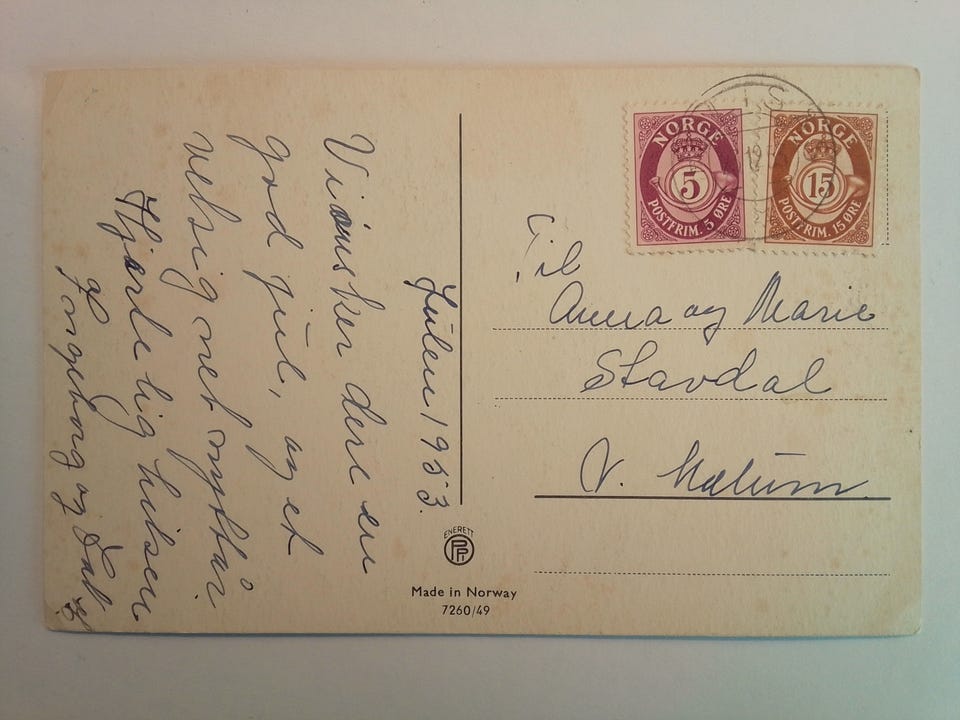 Julen 1953.
Vi ønsker dere en
god jul, og et
velsignet nyttår
Hjærtelig hilsen
Ingeborg og
NORGE
5
POSTFRIM. 5 ØRE
NORGE
15
POSTFRIM. 15 ØRE
Til
Anna og Marie
Stavdal
N. Mælum.
ENERETT
Made in Norway
7260/49